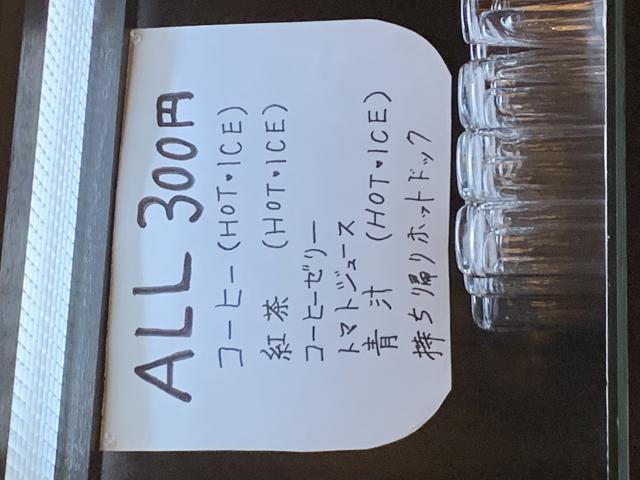 ALL 300円
コーヒー(HOT・ICE)
紅茶 (HOT・ICE)
コーヒーゼリー
トマトジュース
青汁 (HOT・ICE)
持ち帰りホットドック